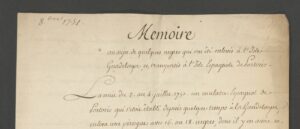 8.bre 1751
Memoire
au sujet de quelques negres qui ont été enlevés à l'Isle
Guadeloupe, et transportés à l'Isle Espagnole de Portoric.
La nuit du 2. au 3 juillet 1750. un mulatre Espagnol de
Portoric qui s'etoit établi depuis quelque temps à la Guadeloupe,
enleva une pirogue avec 16 ou 18 negres, dont il y en avoit